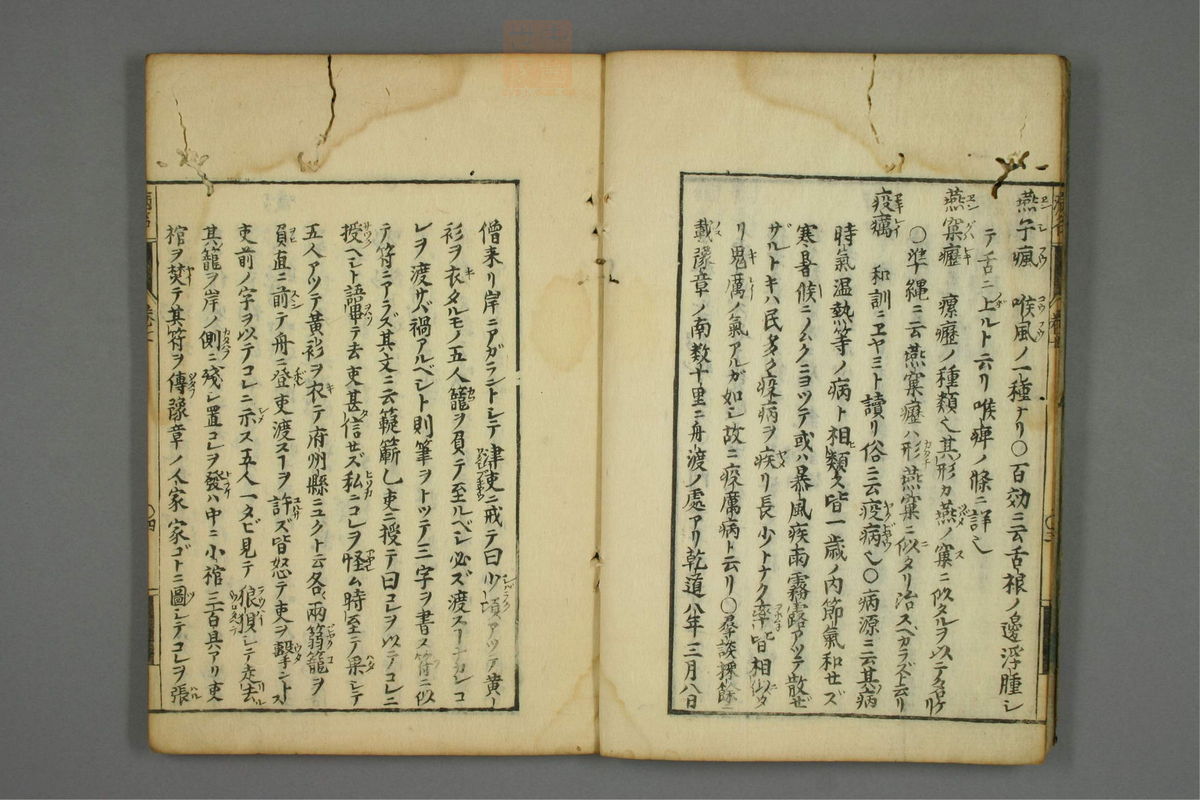 燕子瘋 喉風ノ一種ナリ〇百効ニ云舌根ノ邊浮腫シ
テ舌ニ上ルト云リ喉痺ノ條ニ詳也
燕窠癧 瘰癧ノ種類也其形カ燕ノ窠ニ似タルヲ以テ名ツケリ
〇準縄ニ云燕窠癧ハ形燕窠ニ似タリ治スベカラズト云リ
疫癘 和訓ニヱヤミト讀リ俗ニ云疫病也〇病源ニ云其病
時氣温熱等ノ病ト相類ス皆一歳ノ内節氣和セズ
寒暑候ニソムクニヨツテ或ハ暴風疾雨霧露アツテ散ゼ
ザルトキハ民多ク疫病ヲ疾リ長少トナク率皆相似タ
リ鬼厲ノ氣アルガ如シ故ニ疫厲病ト云リ〇尋談
載豫章ノ南数十里ニ舟渡ノ處アリ乾道八年三月八日
僧来リ岸ニアガラントシテ津吏ニ戒テ曰少頃アツテ黄ノ
衫ヲ衣タルモノ五人籠ヲ負テ至ルベシ必ズ渡スナカレコ
レヲ渡サバ禍アルベシト則筆ヲトツテ三字ヲ書ス符ニ似
テ符ニアラズ其文ニ云 吏ニ授テ曰コレヲ以テコレニ
授ベント語畢テ去吏甚信セズ私ニコレヲ怪ム時至テ果シテ
五人アツテ黄衫ヲ衣テ府州縣ニユクト云各両籠ヲ
負直ニ前テ舟ニ登吏渡スヿヲ許ズ皆怒テ吏ヲ擊ントス
吏前ノ字ヲ以テコレニ示ス五人一タビ見テ狼狽シテ走去
其籠ヲ岸ノ側ニ残シ置コレヲ發ハ中ニ小棺三百具アリ吏
棺ヲ焚テ其符ヲ傳豫章ノ人家家ゴトニ圖シテコレヲ張